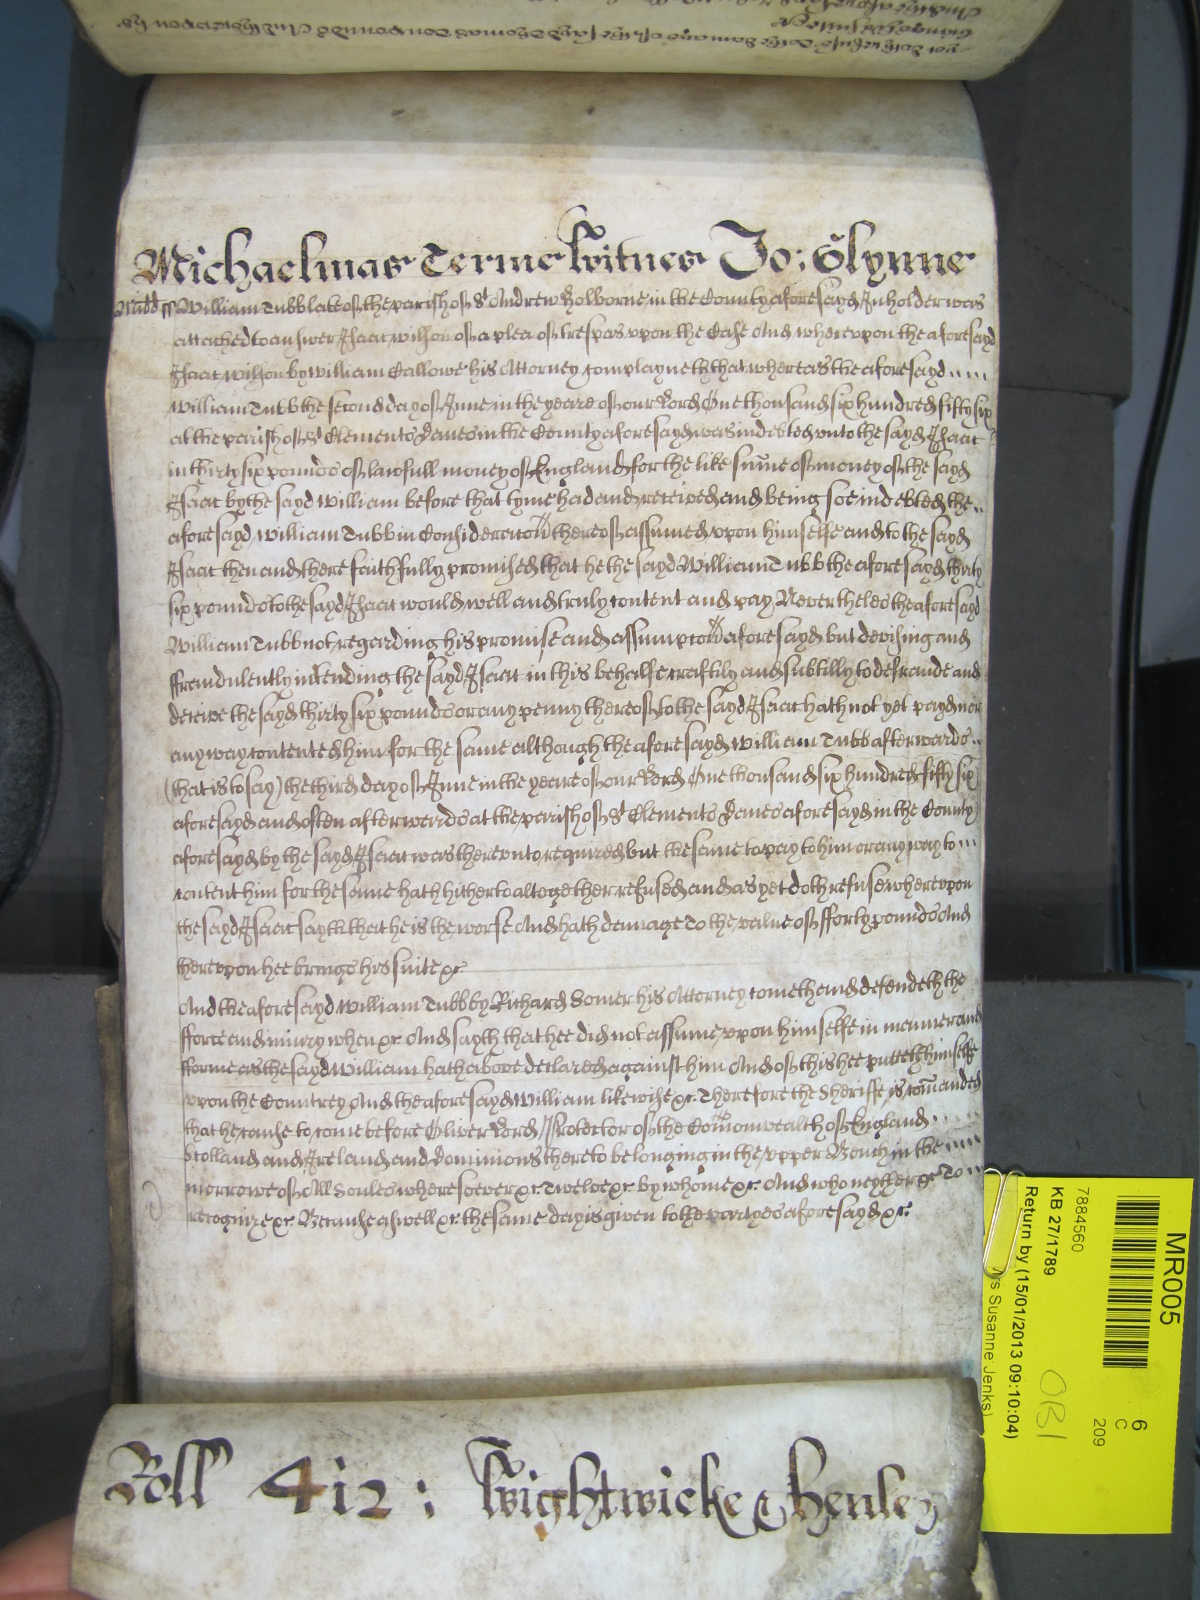 Michaelmas Terme Witnes Jo: Glynne
Midd ss William Tubb late of the parish of St Andrew Holborne in the County aforesayd Inholder was
attached to answer Isaac Wilson of a plea of trespas upon the Case And whereupon the aforesayd
Isaac Wilson by William Callowe his Attorney complayneth that whereas the aforesayd .....
William Tubb the second day of June in the yeare of our Lord One thousand six hundred fifty six
at the parish of St Clements Danes in the County aforesayd was indebted unto the sayd Isaac
in thirty six pounds of lawfull money of England for the like sume of money of the sayd
Isaac by the sayd William before that tyme had and received and being soe indebted the ..
aforesayd William Tubb in Consideracion thereof assumed upon himselfe and to the sayd
Isaac then and there faithfully promised that he the sayd William Tubb the aforesayd thirty
six pounds to the sayd Isaac would well and truly content and pay Nevertheles the aforesayd
William Tubb not regarding his promise and assumpcion aforesayd but devising and
ffraudulently intending the sayd Isaac in this behalfe craftily and subtilly to defraude and
deceive the sayd thirty six pounds or any penny thereof to the sayd Isaac hath not yet payd nor
any way contented him for the same although the aforesayd William Tubb afterwards ..
(that is to say) the third day of June in the yeare of our Lord One thousand six hundred fifty six
aforesayd and often afterwards at the parish of St Clements Danes aforesayd in the County
aforesayd by the sayd Isaac was thereunto required but the same to pay to him or any way to ...
content him for the same hath hitherto altogether refused and as yet doth refuse whereupon
the sayd Isaac sayth that he is the worse And hath damage to the value of fforty pounds And
thereupon hee brings his suite &c
And the aforesayd William Tubb by Richard Somer his Attorney cometh and defendeth the
fforce and iniury when &c And sayth that hee did not assume upon himselfe in manner and
fforme as the sayd William hath above declared against him And of this hee putteth himselfe
upon the Countrey And the aforesayd William likewise &c Therefore the Sheriffe is comanded
that he cause to come before Oliver Lord Protector of the Comonwealth of England .....
Scotland and Ireland and Dominions thereto belonging in the upper Bench in the ....
morrowe of All Soules wheresoever &c Twelve &c by whome &c And who neyther &c To ...
recognize &c Because aswell &c the same day is given to the partyes aforesayd &c
Roll 412 : Wightwicke & Henley
MR005
6
C
209
7884560
KB 27/1789
Return by (15/01/2013 09:10:04)
Susanne Jenks)